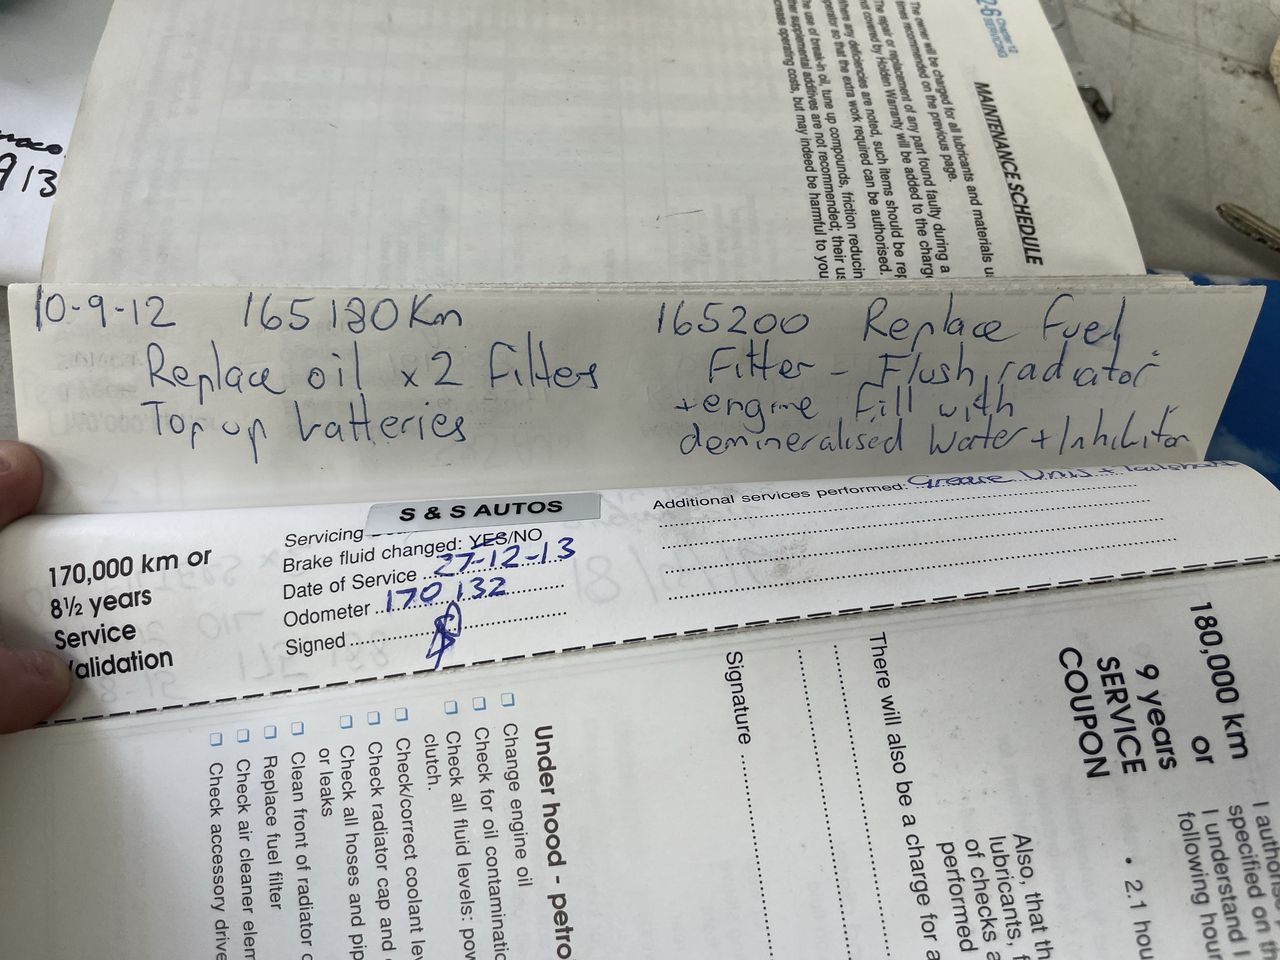 2-6
Chapter 12
SERVICING
MAINTENANCE SCHEDULE
The owner will be charged for all lubricants and materials
times recommended on the previous page.
The repair or replacement of any part found faulty during a
not covered by Holden Warranty will be added to the
Where any deficiencies are noted, such items should be
operator so that the extra work required can be authorised.
The use of break-in oil, tune up compounds, friction
other supplemental additives are not recommended; their
increase operating costs, but may indeed be harmful to you
913
10-9-12 165180Km
Replace oil x2 filters
Top up batteries
165200 Replace Fuel
Filter - Flush radiator
+ engine fill with
demineralised Water + Inhibitor
170,000 km or
8½ years
Service
Validation
Servicing
S & S AUTOS
Brake fluid changed: YES/NO
Date of Service 27-12-13
Odometer 170 132
Signed
Additional services performed: Grease Unis +
180,000 km
or
9 years
SERVICE
COUPON
I understand I
following hour
• 2.1 hou
Also, that th
lubricants,
of checks a
performed
There will also be a charge for a
Signature
Under hood - petro
❑ Change engine oil
❑ Check for oil
❑ Check all fluid levels: pow
clutch.
❑ Check/correct coolant le
❑ Check radiator cap and
❑ Check all hoses and pip
or leaks
❑ Clean front of radiator
❑ Replace fuel filter
❑ Check air cleaner elem
❑ Check accessory drive